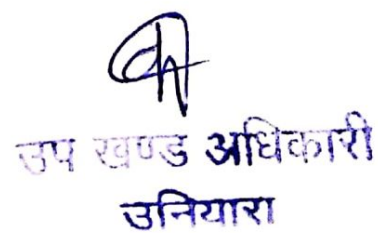 उप खण्ड अधिकारी
उनियारा